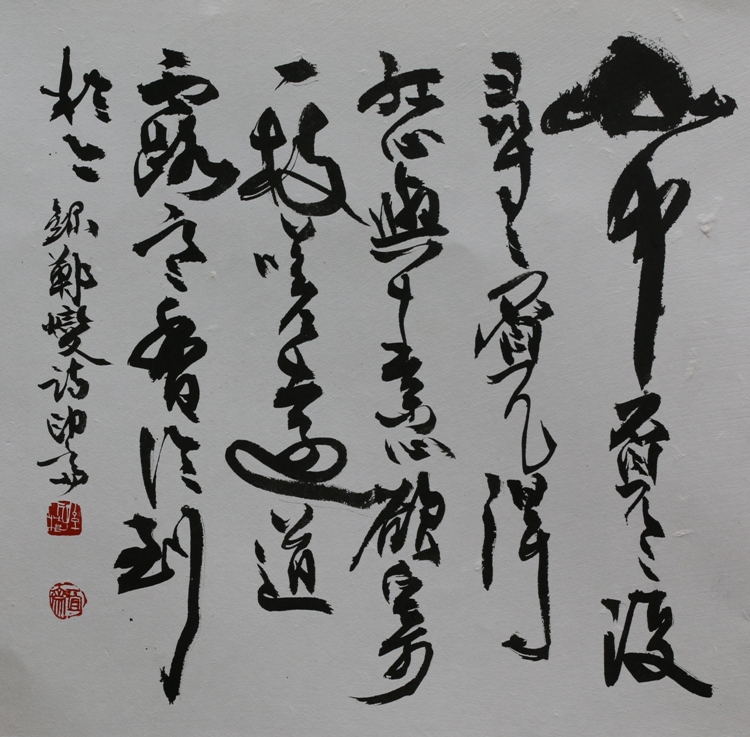 山中覓々復
尋々覓得
紅心與素心欲寄
一枝嗟遠道
露寒香冷到
於今 錄鄭燮詩印